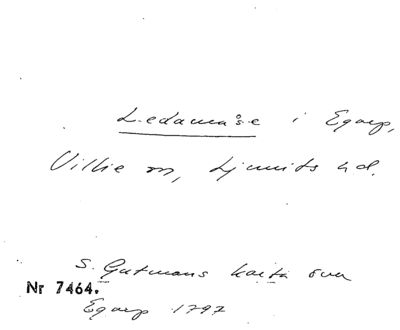 Ledamåse i Egarp,
Villie sn, Ljunits hd.
S. Gutmans karta över
Nr 7464.
Egarp 1797